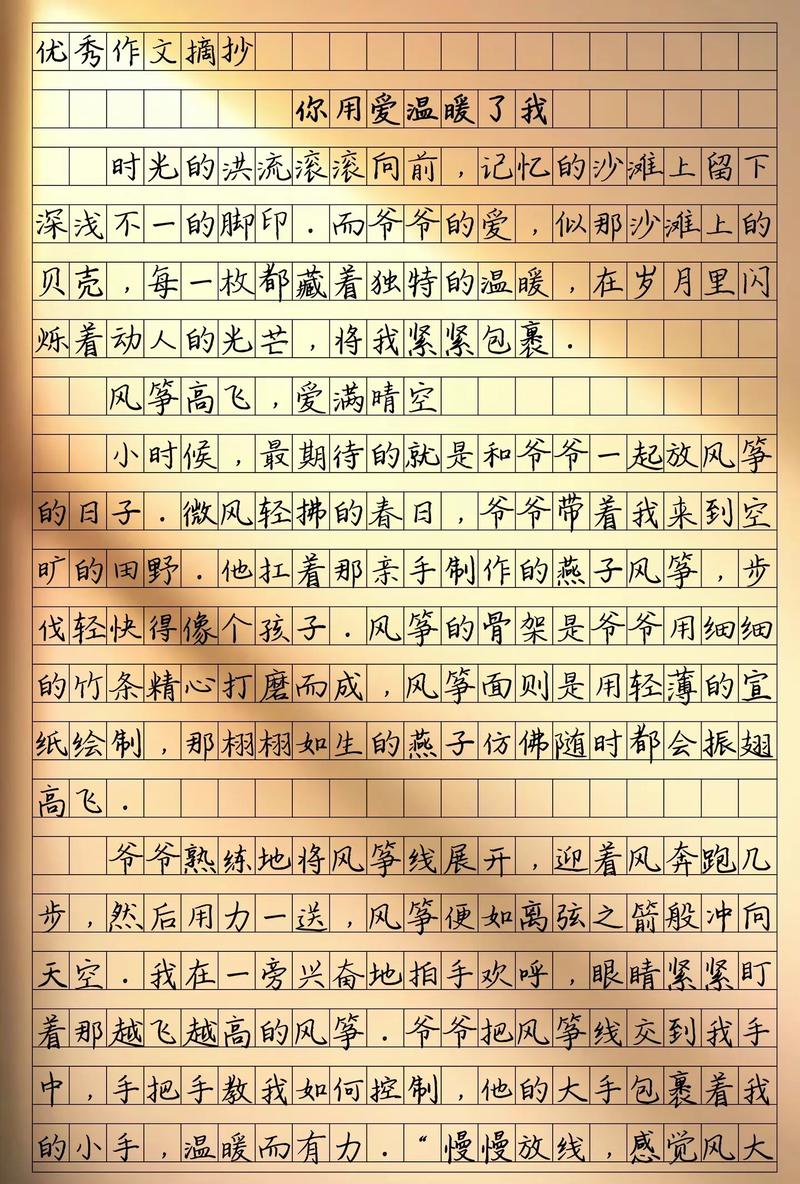 优秀作文摘抄
你用爱温暖了我
时光的洪流滚滚向前，记忆的沙滩上留下
深浅不一的脚印．而爷爷的爱，似那沙滩上的
贝壳，每一枚都藏着独特的温暖，在岁月里闪
烁着动人的光芒，将我紧紧包裹．
风筝高飞，爱满晴空
小时候，最期待的就是和爷爷一起放风筝
的日子．微风轻拂的春日，爷爷带着我来到空
旷的田野．他扛着那亲手制作的燕子风筝，步
伐轻快得像个孩子．风筝的骨架是爷爷用细细
的竹条精心打磨而成，风筝面则是用轻薄的宣
纸绘制，那栩栩如生的燕子仿佛随时都会振翅
高飞．
爷爷熟练地将风筝线展开，迎着风奔跑几
步，然后用力一送，风筝便如离弦之箭般冲向
天空．我在一旁兴奋地拍手欢呼，眼睛紧紧盯
着那越飞越高的风筝．爷爷把风筝线交到我手
中，手把手教我如何控制，他的大手包裹着我
的小手，温暖而有力．“慢慢放线，感觉风大